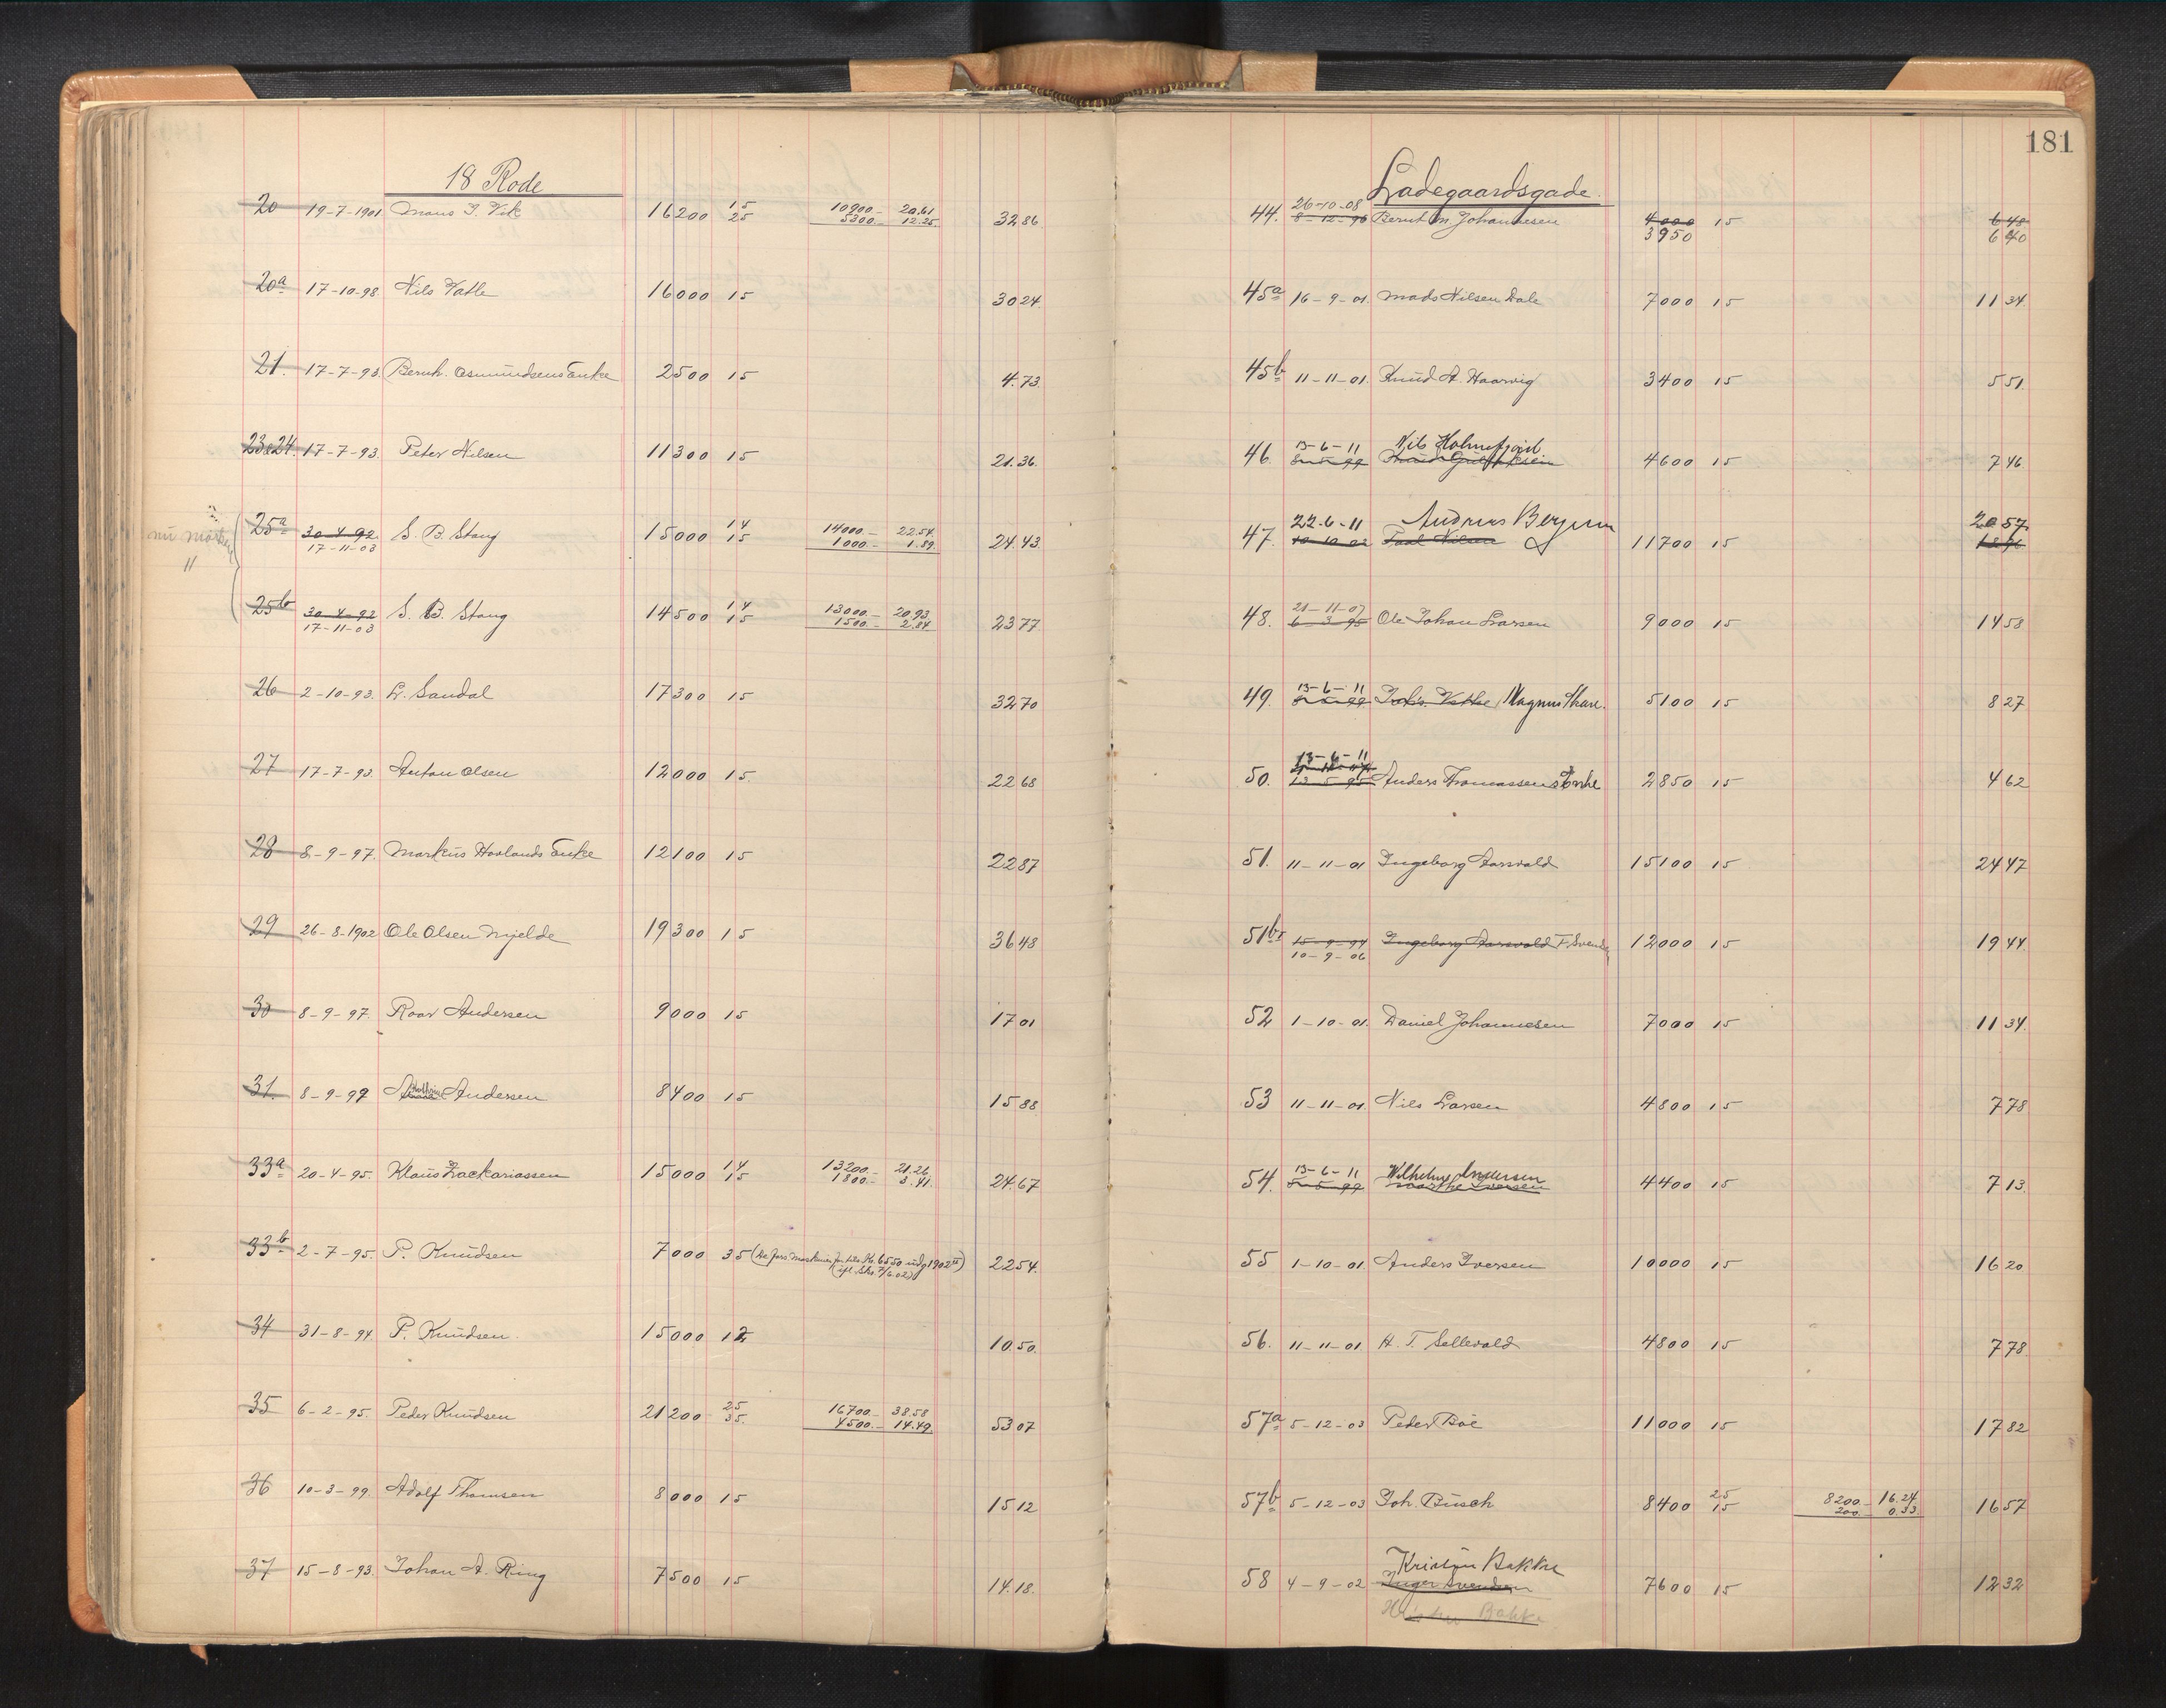 181
18 Rode
20 19-7-1901 Mons J. Vik 16200 15 10900.- 20.61 32 86
25 5300.- 12.25
20a 17-10-98 Nils Vatle 16000 15 30 24
21. 17-7-93. Bernh. Osmundsens Enke 2500 15 4.73
23&24. 17-7-93. Peter Nilsen 11300 15 21.36
25a 30-4-92 S. B. Stang 15000 14 14000.- 22.54 24.43
17-11-03 15 1000.- 1.89
25b 30-4-92 S. B. Stang 14500 14 13000.- 20.93 23 77
17-11-03 15 1500.- 2.84
26 2-10-93. L. Sandal 17300 15 32 70
27 17-7-93. Anton Olsen 12000 15 22 68
28 8-9-97. Markus Hovlands Enke 12100 15 22 87
29 26-8-1902 Ole Olsen Mjelde 19300 15 36 48
30 8-9-97. Roar Andersen 9000 15 17 01
31. 8-9-97 Andersen 8400 15 15 88
33a 20-4-95. Klaus Zackariassen 15000 14 13200.- 21.26 24 67
15 1800.- 3.41.
33b 2-7-95. P. Knudsen 7000 35 (De fors. Maskiner for tils. Kr. 6550 udg 1902) 22 54.
34 31-8-94 P. Knudsen. 15000 12 10.50.
35 6-2-95. Peder Knudsen 21200 25 16700.- 38.58 53 07
35. 4500.- 14.49.
36 10-3-99. Adolf Thomsen 8000 15 15 12
37 15-8-93. Johan A. Ring 7500 15 14.18.
Ladegaardsgade.
44. 26-10-08
8-12-96 Bernt M. Johannesen 4000 15 6 48
3950 6 40
45a 16-9-01. Mads Nilsen Dale 7000 15 11 34
45b 11-11-01. Knud A. Haarvig 3400 15 5 51.
46. 13-6-11 Nils Holmefjord 4600 15 7 46
47. 22-6-11 Andreas Bergum 20 57
10-10-02 Paul Nilsen 11700 15 18 96
48. 21-11-07
6-3-95 Ole Johan Larsen 9000 15 14 58
49. 13-6-11
Johs. Vatle Magnus Skare. 5100 15 8 27
50. 13-6-11
13-5-95 Anders Thomassens Enke 2850 15 4 62
51. 11-11-01 Ingeborg Aarsvold 15100 15 24 47
51b 15-9-94 Ingeborg Aarsvold F. Svendsen 12000 15 19 44
10-9-06
52 1-10-01. Daniel Johannesen 7000 15 11 34
53 11-11-01. Nils Larsen 4800 15 7 78
54. 13-6-11 Wilhelm Andersen
Iversen 4400 15 7 13
55 1-10-01. Anders Iversen 10000 15 16 20
56. 11-11-01 A. T. Sellevold 4800 15 7 78
57a 5-12-03 Peder Böe 11000 15 17 82
57b 5-12-03 Joh. Busch 8400 25 8200.- 16.24 16 57
15 200.- 0.33.
58 4-9-02 Kristen Bakke
Inger Svendsen 7600 15 12 32
Bakke